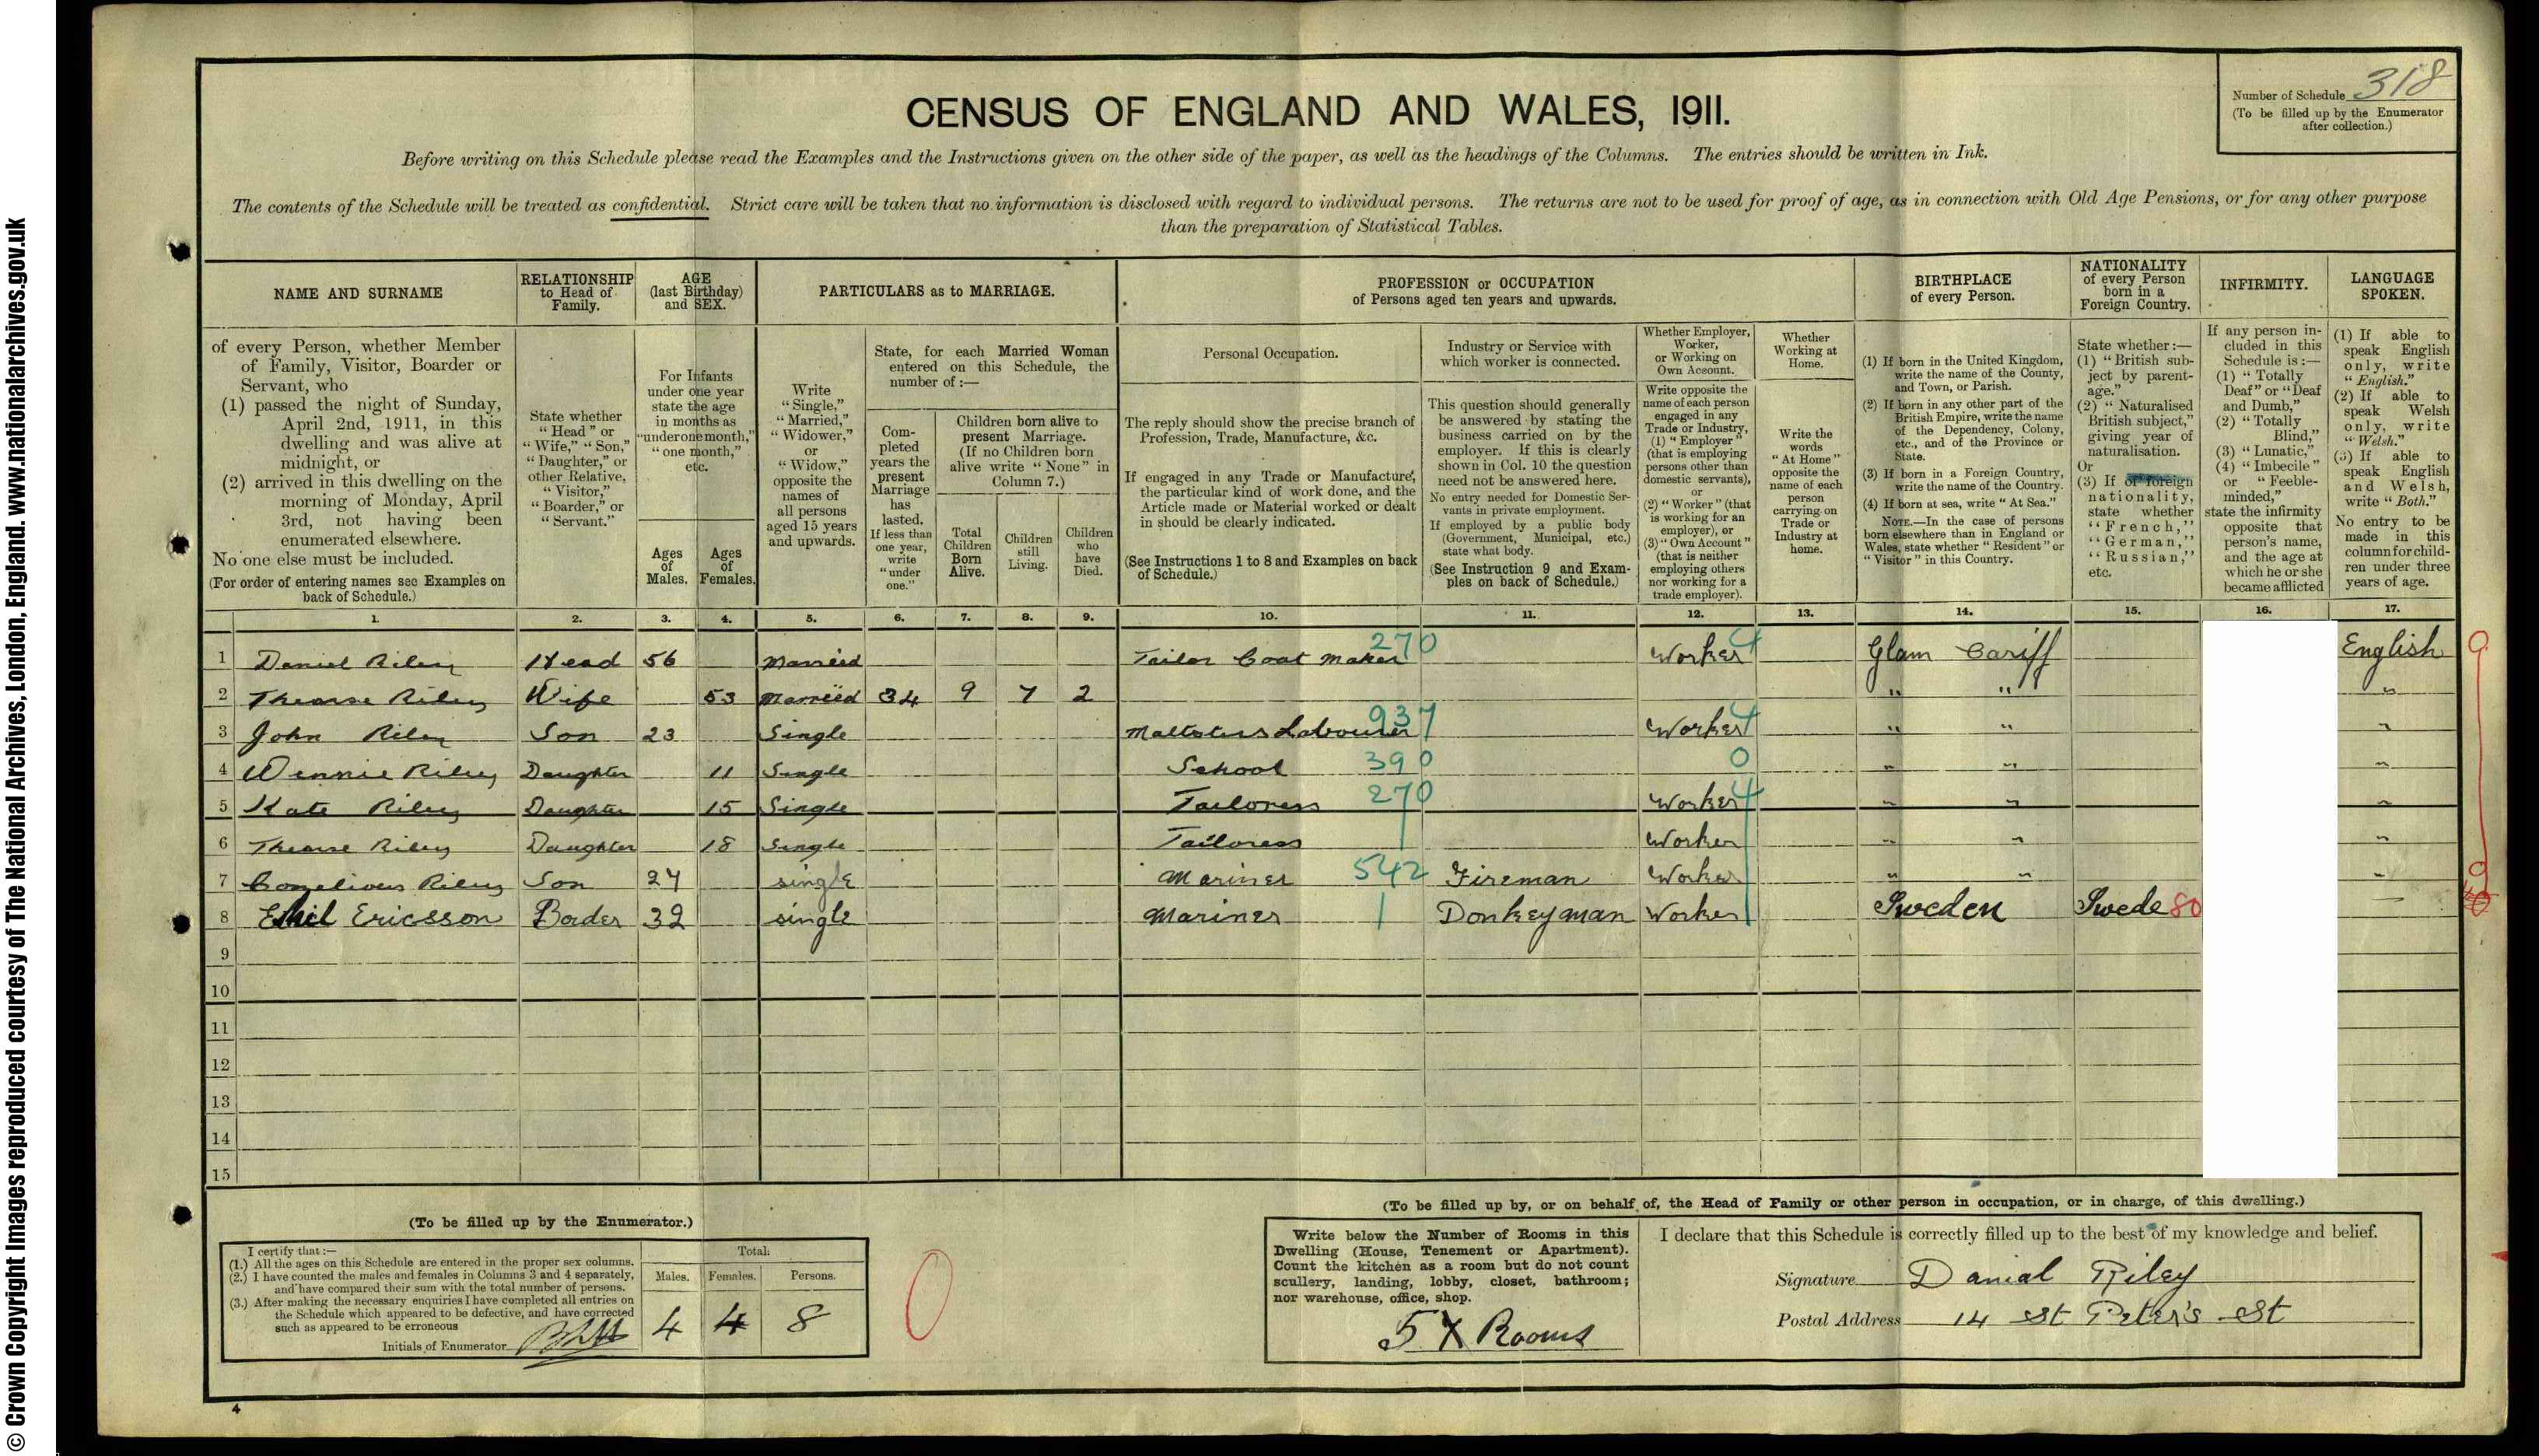 © Crown Copyright Images reproduced courtesy of The National Archives, London, England. www.nationalarchives.gov.uk
CENSUS OF ENGLAND AND WALES, 1911.
Number of Schedule 318
(To be filled up by the Enumerator
after collection.)
Before writing on this Schedule please read the Examples and the Instructions given on the other side of the paper, as well as the headings of the Columns. The entries should be written in Ink.
The contents of the Schedule will be treated as confidential. Strict care will be taken that no information is disclosed with regard to individual persons. The returns are not to be used for proof of age, as in connection with Old Age Pensions, or for any other purpose
than the preparation of Statistical Tables.
NAME AND SURNAME
RELATIONSHIP
to Head of
Family.
AGE
(last Birthday)
and SEX.
PARTICULARS as to MARRIAGE.
PROFESSION or OCCUPATION
of Persons aged ten years and upwards.
BIRTHPLACE
of every Person.
NATIONALITY
of every Person
born in a
Foreign Country.
INFIRMITY.
LANGUAGE
SPOKEN.
of every Person, whether Member
of Family, Visitor, Boarder or
Servant, who
(1) passed the night of Sunday,
April 2nd, 1911, in this
dwelling and was alive at
midnight, or
(2) arrived in this dwelling on the
morning of Monday, April
3rd, not having been
enumerated elsewhere.
No one else must be included.
(For order of entering names see Examples on
back of Schedule.)
State whether
"Head" or
"Wife," "Son,"
"Daughter," or
other Relative,
"Visitor,"
"Boarder," or
"Servant."
For Infants
under one year
state the age
in months as
"under one month,"
"one month,"
etc.
Ages
of
Males.
Ages
of
Females.
Write
"Single,"
"Married,"
"Widower,"
or
"Widow,"
opposite the
names of
all persons
aged 15 years
and upwards.
State, for each Married Woman
entered on this Schedule, the
number of :—
Com-
pleted
years the
present
Marriage
has
lasted.
If less than
one year,
write
"under
one."
Children born alive to
present Marriage.
(If no Children born
alive write "None" in
Column 7.)
Total
Children
Born
Alive.
Children
still
Living.
Children
who
have
Died.
Personal Occupation.
The reply should show the precise branch of
Profession, Trade, Manufacture, &c.
If engaged in any Trade or Manufacture,
the particular kind of work done, and the
Article made or Material worked or dealt
in should be clearly indicated.
(See Instructions 1 to 8 and Examples on back
of Schedule.)
Industry or Service with
which worker is connected.
This question should generally
be answered by stating the
business carried on by the
employer. If this is clearly
shown in Col. 10 the question
need not be answered here.
No entry needed for Domestic Ser-
vants in private employment.
If employed by a public body
(Government, Municipal, etc.)
state what body.
(See Instruction 9 and Exam-
ples on back of Schedule.)
Whether Employer,
Worker,
or Working on
Own Account.
Write opposite the
name of each person
engaged in any
Trade or Industry,
(1) "Employer"
(that is employing
persons other than
domestic servants),
or
(2) "Worker" (that
is working for an
employer), or
(3) "Own Account"
(that is neither
employing others
nor working for a
trade employer).
Whether
Working at
Home.
Write the
words
"At Home"
opposite the
name of each
person
carrying on
Trade or
Industry at
home.
(1) If born in the United Kingdom,
write the name of the County,
and Town, or Parish.
(2) If born in any other part of the
British Empire, write the name
of the Dependency, Colony,
etc., and of the Province or
State.
(3) If born in a Foreign Country,
write the name of the Country.
(4) If born at sea, write "At Sea."
NOTE.—In the case of persons
born elsewhere than in England or
Wales, state whether "Resident" or
"Visitor" in this Country.
State whether :—
(1) "British sub-
ject by parent-
age."
(2) "Naturalised
British subject,"
giving year of
naturalisation.
Or
(3) If of foreign
nationality,
state whether
"French,"
"German,"
"Russian,"
etc.
If any person in-
cluded in this
Schedule is :—
(1) "Totally
Deaf" or "Deaf
and Dumb,"
(2) "Totally
Blind,"
(3) "Lunatic,"
(4) "Imbecile"
or "Feeble-
minded,"
state the infirmity
opposite that
person's name,
and the age at
which he or she
became afflicted
(1) If able to
speak English
only, write
"English."
(2) If able to
speak Welsh
only, write
"Welsh."
(3) If able to
speak English
and Welsh,
write "Both."
No entry to be
made in this
column for child-
ren under three
years of age.
1. 2. 3. 4. 5. 6. 7. 8. 9. 10. 11. 12. 13. 14. 15. 16. 17.
1 Daniel Riley Head 56 Married Tailor Coat Maker 270 Worker 4 Glam Cariff English
2 Thearse Riley Wife 53 Married 34 9 7 2 " " "
3 John Riley Son 23 Single Maltsters Labourer 937 Worker 4 " " "
4 Winnie Riley Daughter 11 Single School 390 0 " " "
5 Kate Riley Daughter 15 Single Tailoress 270 Worker 4 " " "
6 Thearse Riley Daughter 18 Single Tailoress Worker " " "
7 Cornelious Riley Son 24 single Mariner 542 Fireman Worker " " "
8 Emil Ericsson Border 32 single Mariner Donkeyman Worker Sweden Swede 80
9
10
11
12
13
14
15
(To be filled up by the Enumerator.)
I certify that :—
(1.) All the ages on this Schedule are entered in the proper sex columns.
(2.) I have counted the males and females in Columns 3 and 4 separately,
and have compared their sum with the total number of persons.
(3.) After making the necessary enquiries I have completed all entries on
the Schedule which appeared to be defective, and have corrected
such as appeared to be erroneous
Initials of Enumerator
Total:
Males. Females. Persons.
4 4 8
0
(To be filled up by, or on behalf of, the Head of Family or other person in occupation, or in charge, of this dwelling.)
Write below the Number of Rooms in this
Dwelling (House, Tenement or Apartment).
Count the kitchen as a room but do not count
scullery, landing, lobby, closet, bathroom;
nor warehouse, office, shop.
5 X Rooms
I declare that this Schedule is correctly filled up to the best of my knowledge and belief.
Signature Danial Riley
Postal Address 14 St Peter's St
4